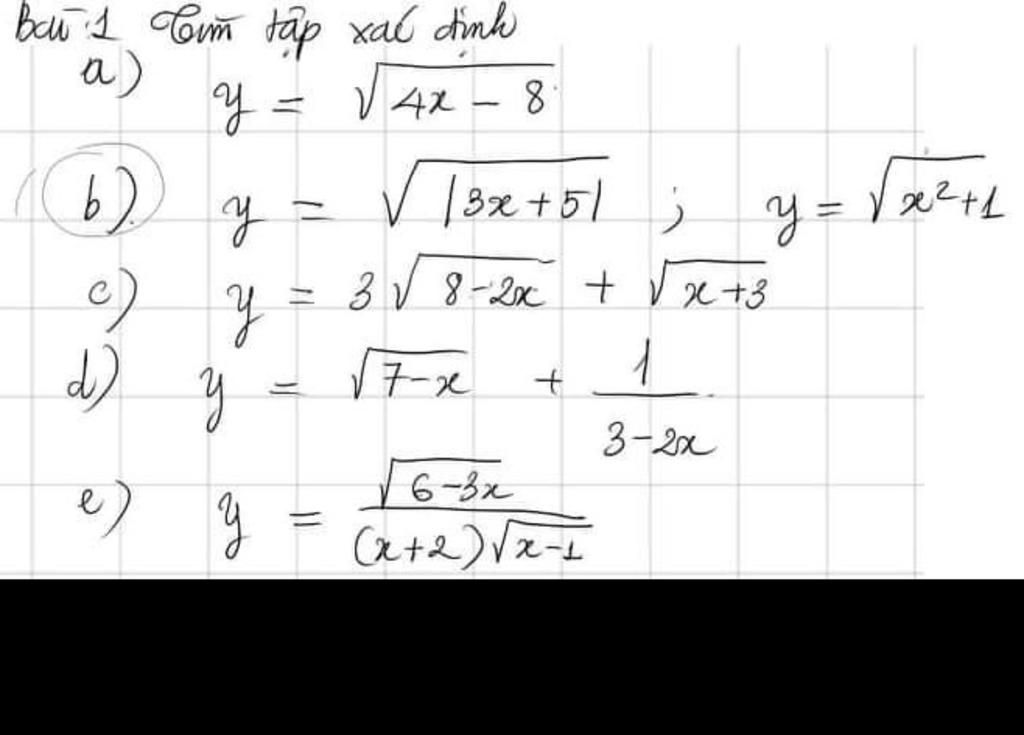 Bài 1 Tìm tập xác định
a) y = √(4x - 8)
b). y = √|3x+5| ; y = √(x²+1)
c) y = 3√(8-2x) + √(x+3)
d) y = √(7-x) + 1/(3-2x)
e) y = √(6-3x)/((x+2)√(x-1))